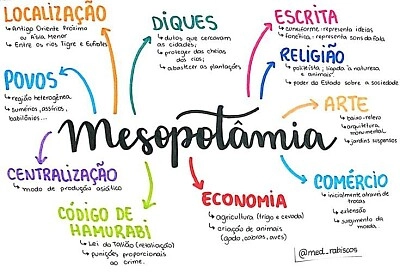 LOCALIZAÇÃO
↳ Antigo Oriente Próximo
ou Ásia Menor
↳ Entre os rios Tigre e Eufrates
DIQUES
↳ dutos que cercavam
as cidades;
↳ proteger das cheias
dos rios;
↳ abastecer as plantações
ESCRITA
↳ cuneiforme - representa ideias
↳ fonética - representa sons da fala
RELIGIÃO
↳ politeísta; ligada à natureza
e animais.
↳ poder do Estado sobre a sociedade
POVOS
↳ região heterogênea
↳ sumérios, assírios,
babilônios...
ARTE
↳ baixo-relevo
↳ arquitetura
monumental
↳ jardins suspensos
Mesopotâmia
CENTRALIZAÇÃO
↳ modo de produção asiático
CÓDIGO DE
HAMURABI
↳ Lei do Talião (retaliação)
↳ punições proporcionais
ao crime.
ECONOMIA
↳ agricultura (trigo e cevada)
↳ criação de animais
(gado, cabras, aves)
COMÉRCIO
↳ inicialmente através de
trocas
↳ extensão
↳ surgimento da
moeda.
@med_rabiscos